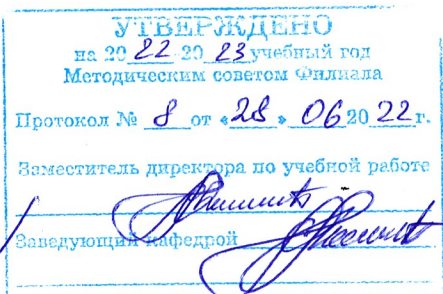 УТВЕРЖДЕНО
на 20 22 - 20 23 учебный год
Методическим советом Филиала
Протокол № 8 от «28» 06 20 22 г.
Заместитель директора по учебной работе
Заведующий кафедрой